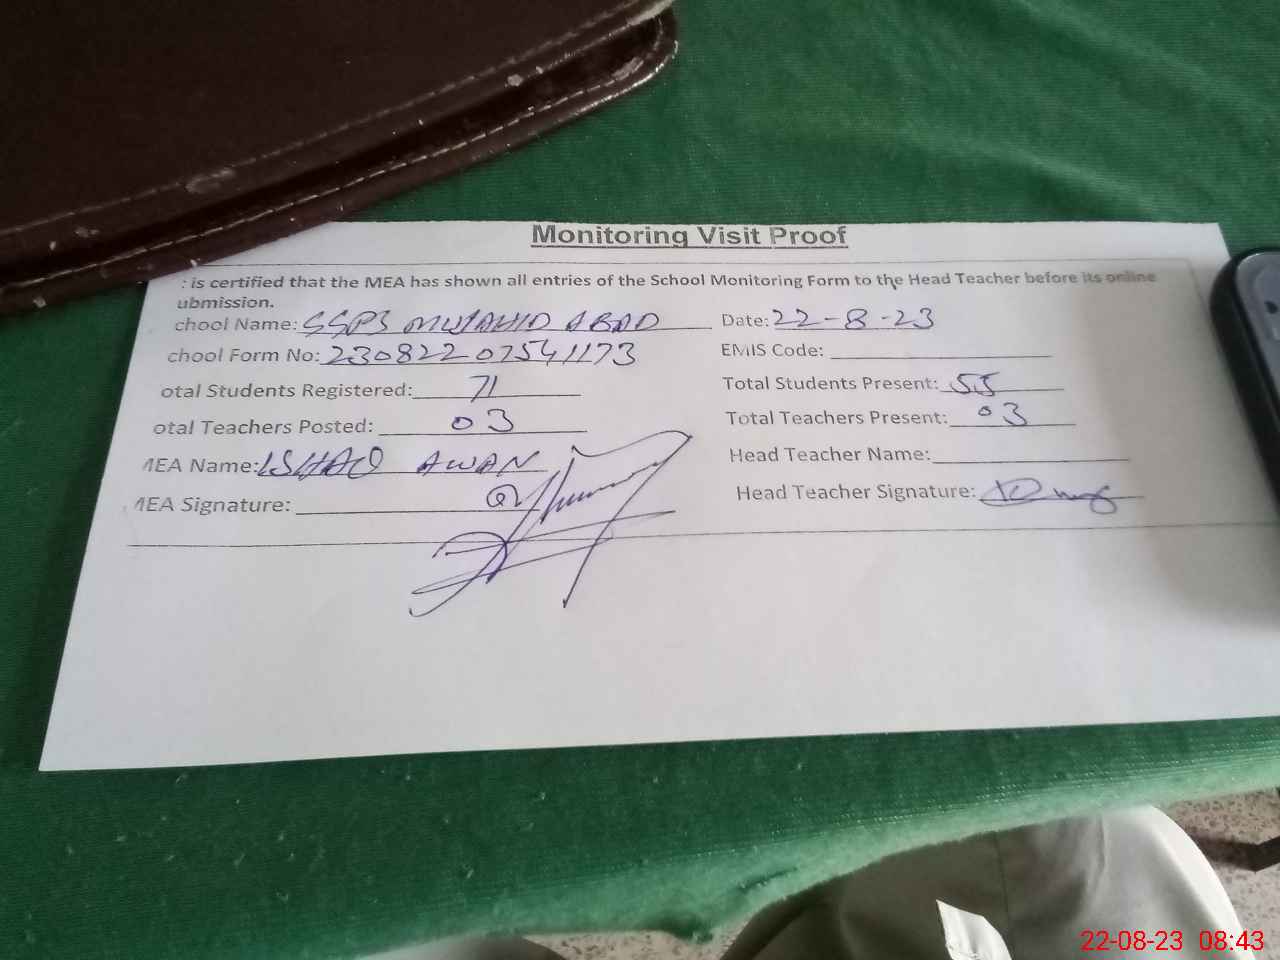 Monitoring Visit Proof
: is certified that the MEA has shown all entries of the School Monitoring Form to the Head Teacher before its online
ubmission.
chool Name: SSPS MUJAHID ABAD Date: 22-8-23
chool Form No: 23082207541173 EMIS Code:
otal Students Registered: 71 Total Students Present: 55
otal Teachers Posted: 03 Total Teachers Present: 03
MEA Name: ISHAQ AWAN Head Teacher Name:
MEA Signature: Head Teacher Signature:
22-08-23 08:43